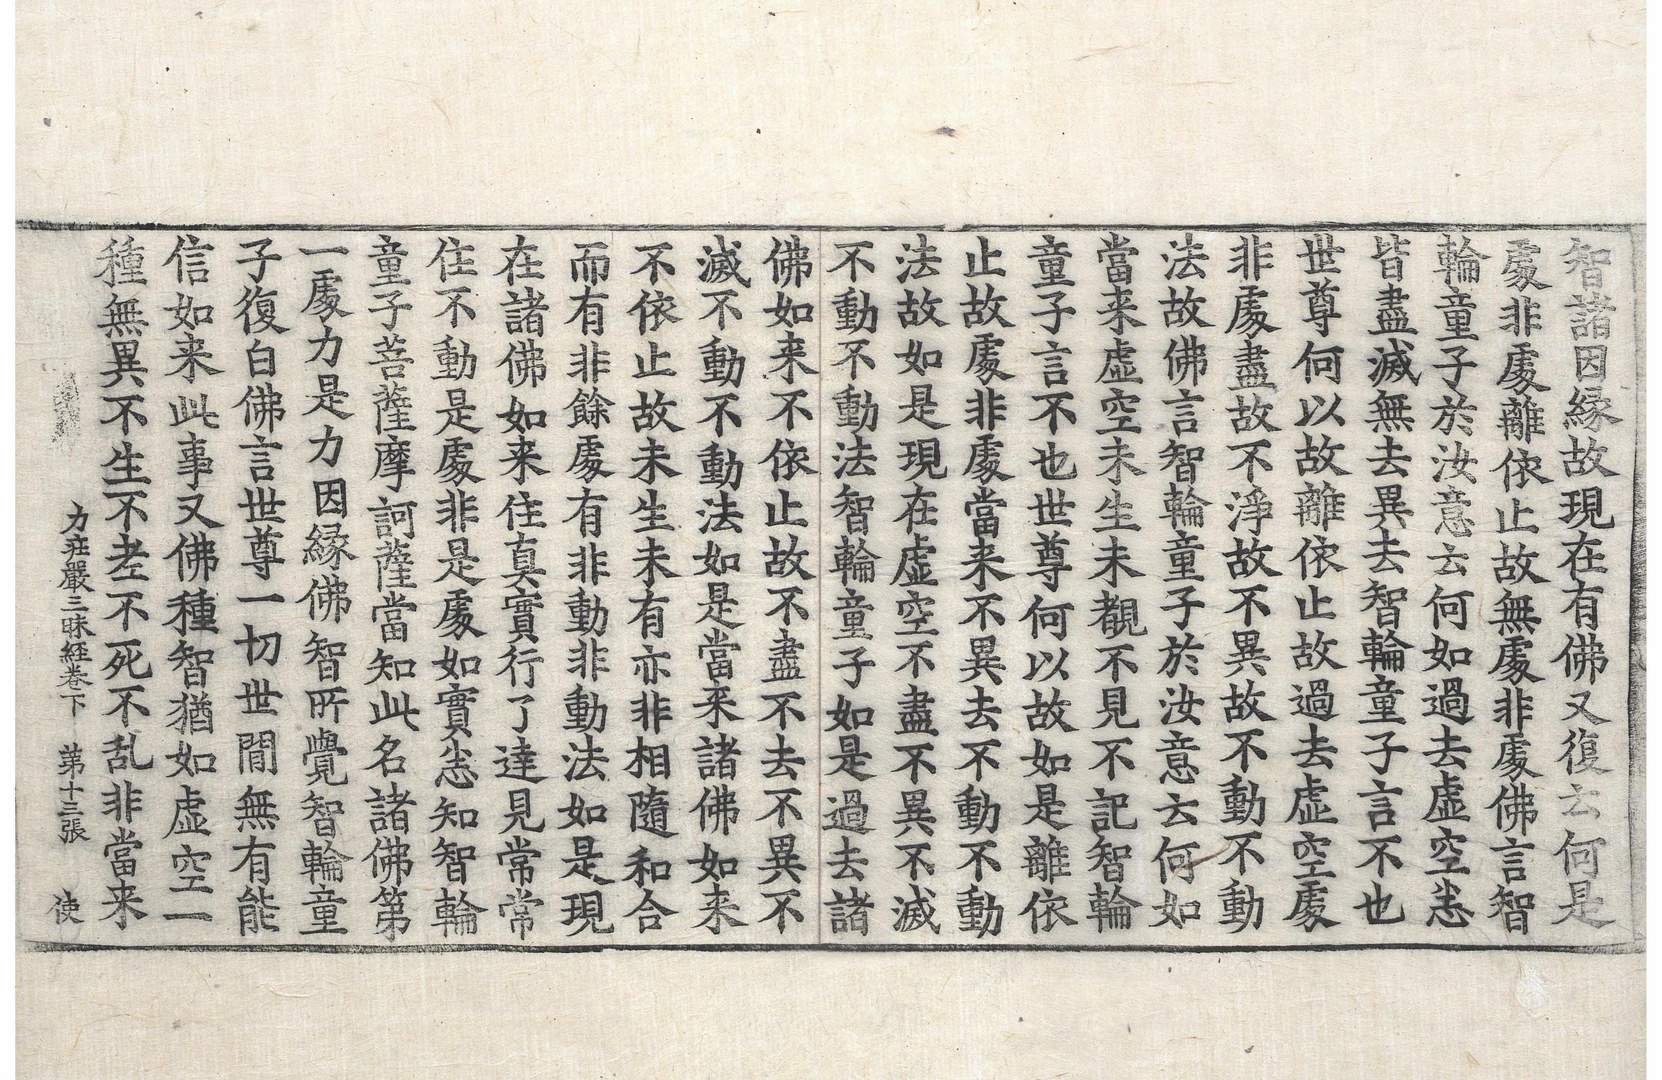 智諸因緣故現在有佛又復云何是
處非處離依止故無處非處佛言智
輪童子於汝意云何如過去虛空悉
皆盡滅無去異去智輪童子言不也
世尊何以故離依止故過去虛空處
非處盡故不淨故不異故不動不動
法故佛言智輪童子於汝意云何如
當来虛空未生未覩不見不記智輪
童子言不也世尊何以故如是離依
止故處非處當来不異去不動不動
法故如是現在虛空不盡不異不滅
不動不動法智輪童子如是過去諸
佛如来不依止故不盡不去不異不
滅不動不動法如是當来諸佛如来
不依止故未生未有亦非相隨和合
而有非餘處有非動非動法如是現
在諸佛如来住真實行了達見常常
住不動是處非是處如實悉知智輪
童子菩薩摩訶薩當知此名諸佛第
一處力是力因緣佛智所覺智輪童
子復白佛言世尊一切世間無有能
信如来此事又佛種智猶如虛空一
種無異不生不老不死不乱非當来
力莊嚴三昧経卷下 第十三張 使